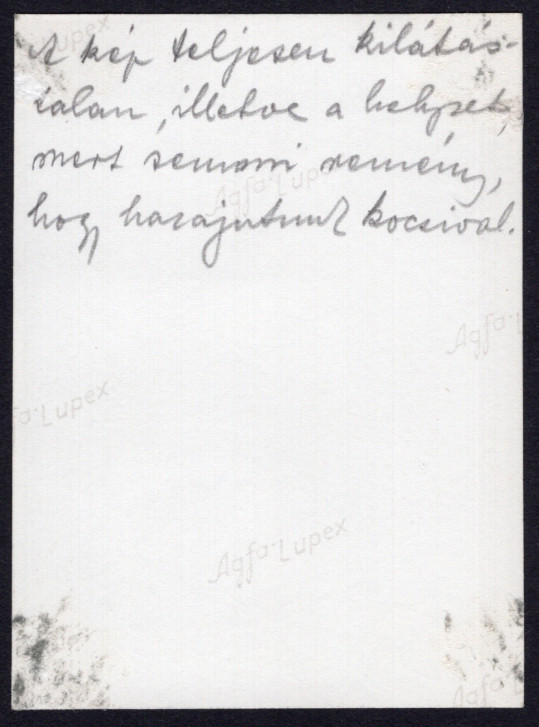 A kép teljesen kilátás-
talan, illetve a helyzet,
mert semmi remény,
hogy hazajutunk kocsival.
Agfa-Lupex
Agfa-L
fa-Lupex
Agfa-Lupex